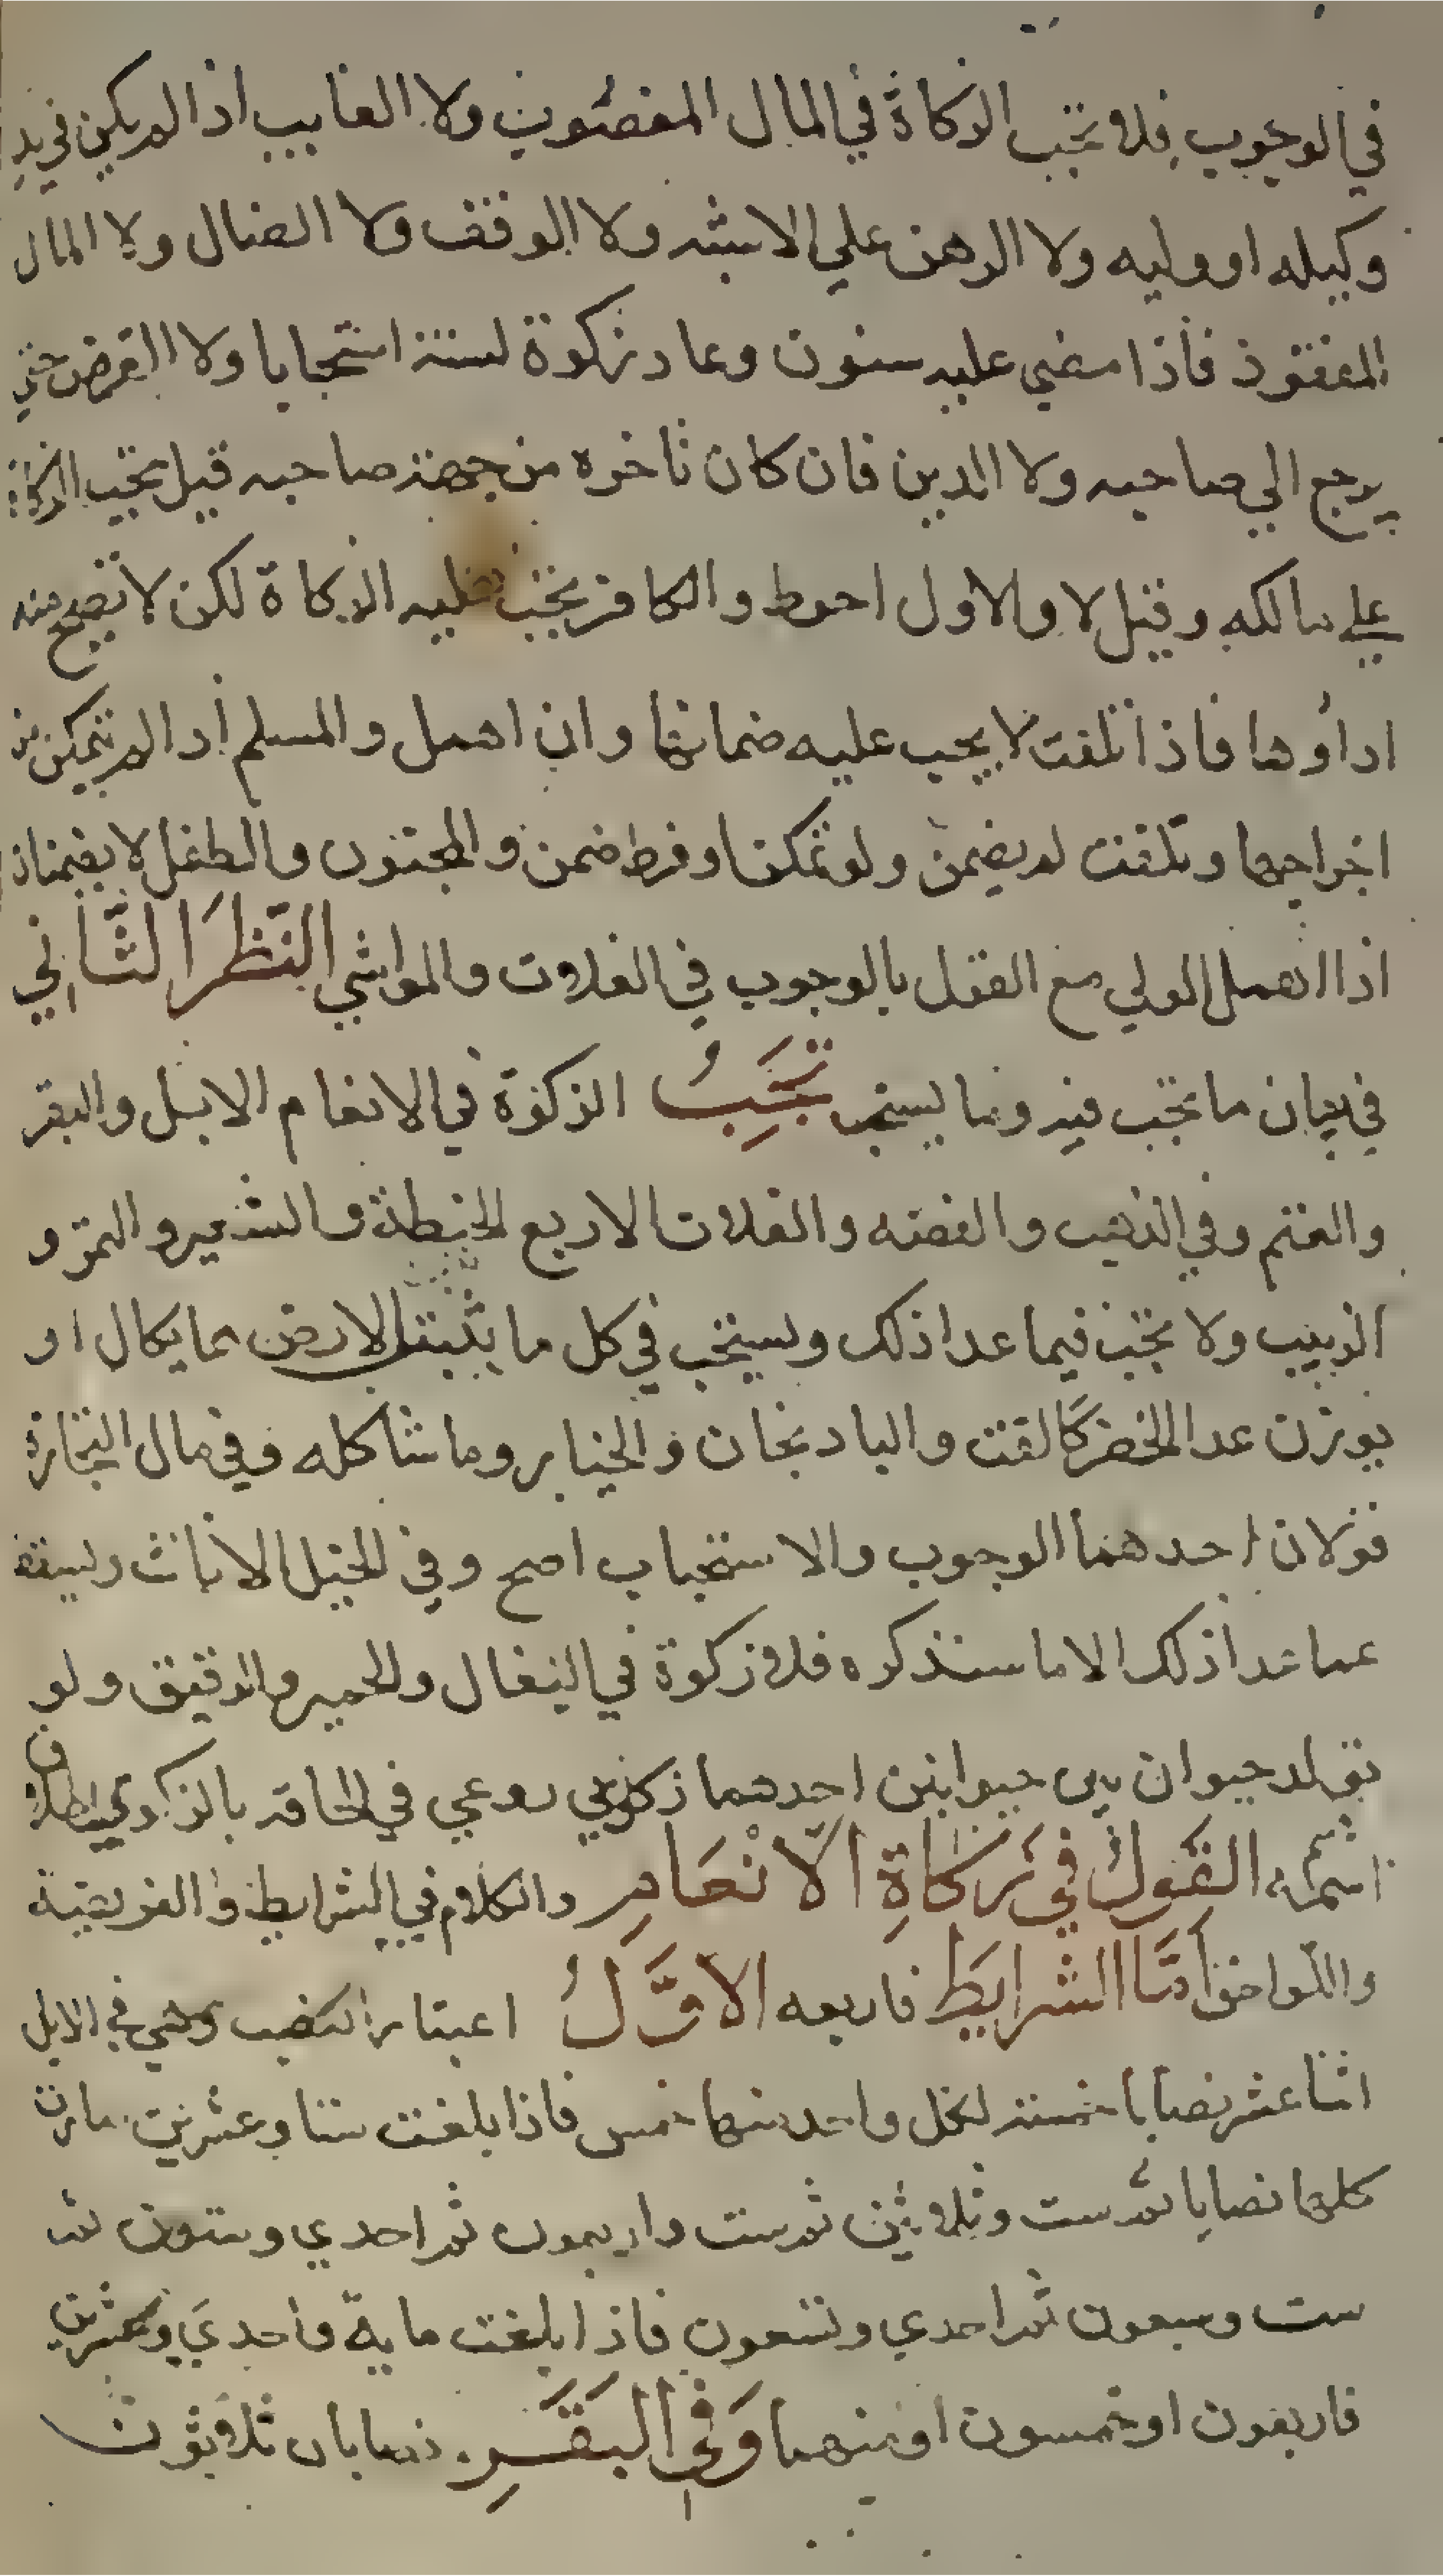 في الوجوب فلا تجب الزكاة في المال المغصوب ولا الغايب اذا لم يكن في يد
وكيله او وليه ولا الرهن علي الاشبه ولا الوقف ولا الضال ولا المال
المفقود فاذا مضي عليه سنون وعاد زكوة لسنة استحبابا ولا القرض حتي
يرجع الي صاحبه ولا الدين فان كان تاخره من جهة صاحبه قيل تجب الزكاة
علي مالكه وقيل لا والاول احوط والكافر تجب عليه الزكاة لكن لا تصح منه
اداؤها فاذا تلفت لا يجب عليه ضمانها وان اهمل والمسلم اذا لم يتمكن من
اخراجها وتلفت لم يضمن ولو تمكن وفرط ضمن والمجنون والطفل لا يضمنان
اذا اهمل الولي مع القول بالوجوب في الغلات والمواشي النظر الثاني
في بيان ما تجب فيه وما يستحب تجب الزكوة في الانعام الابل والبقر
والغنم وفي الذهب والفضه والغلات الاربع الحنطة والشعير والتمر و
الزبيب ولا تجب فيما عدا ذلك ويستحب في كل ما يثبتل الارض مما يكال او
يوزن عدا الخضر كالقت والبادنجان والخيار وما شاكله وفي مال التجارة
قولان احدهما الوجوب والاستحباب اصح وفي الخيل الاناث ويسقط
عما عدا ذلك الا ما سنذكره فلا زكوة في البغال والحمير والرقيق ولو
تولد حيوان بين حيوانين احدهما زكوي روعي في الحاقه بالزكوي اطلاق
اسمه القول في زكاة الانعام والكلام في الشرايط والفريضة
واللواحق اما الشرايط فاربعه الاول اعتبار النصب وهي في الابل
اثنا عشر نصابا خمسة لكل واحد منها خمس فاذا بلغت ستا وعشرين صارت
كلها نصابا ثم ست وثلاثين ثم ست واربعون ثم احدي وستون ثم
ست وسبعون ثم احدي وتسعون فاذا بلغت ماية واحدي وعشرين
فاربعون او خمسون او منهما وفي البقر نصابان ثلاثون